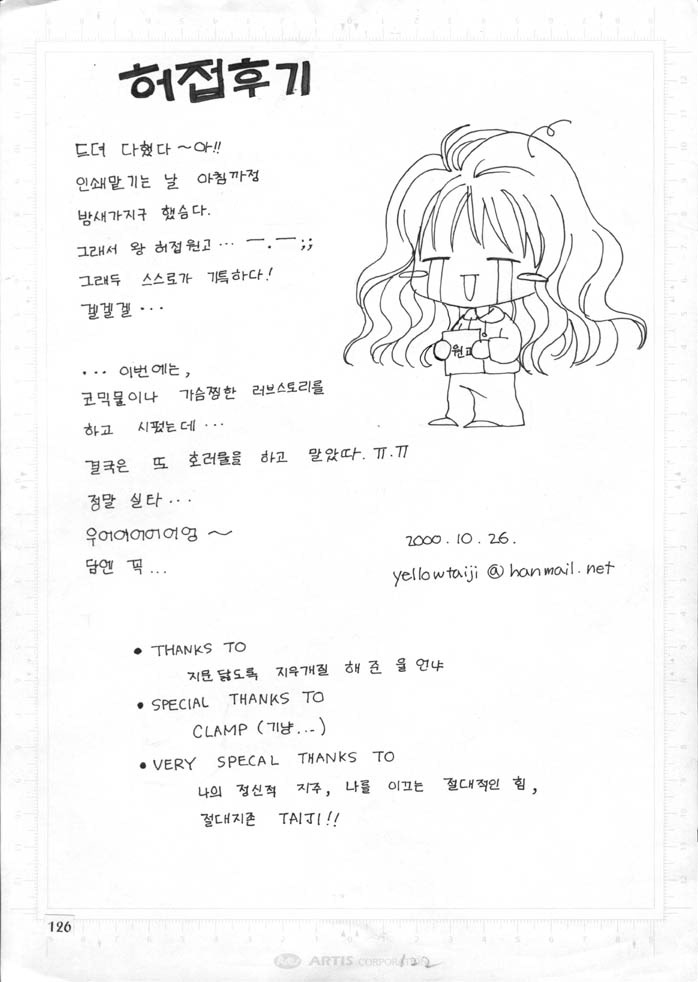 허접후기
드뎌 다했다~아!!
인쇄맡기는 날 아침까정
밤새가지구 했슴다.
그래서 왕 허접원고... ㅡ.ㅡ;;
그래두 스스로가 기특하다!
겔겔겔...
원고
... 이번에는,
코믹물이나 가슴찡한 러브스토리를
하고 시펐는데...
결국은 또 호러물을 하고 말았따. ㅠ.ㅠ
정말 실타...
우어어어어어엉~
담엔 꼭...
2000.10.26.
yellowtaiji@hanmail.net
• THANKS TO
지문닳도록 지우개질 해준 울언냐
• SPECIAL THANKS TO
CLAMP (기냥...)
• VERY SPECAL THANKS TO
나의 정신적 지주, 나를 이끄는 절대적인 힘,
절대지존 TAIJI!!
126
ARTIS CORPORATION
122